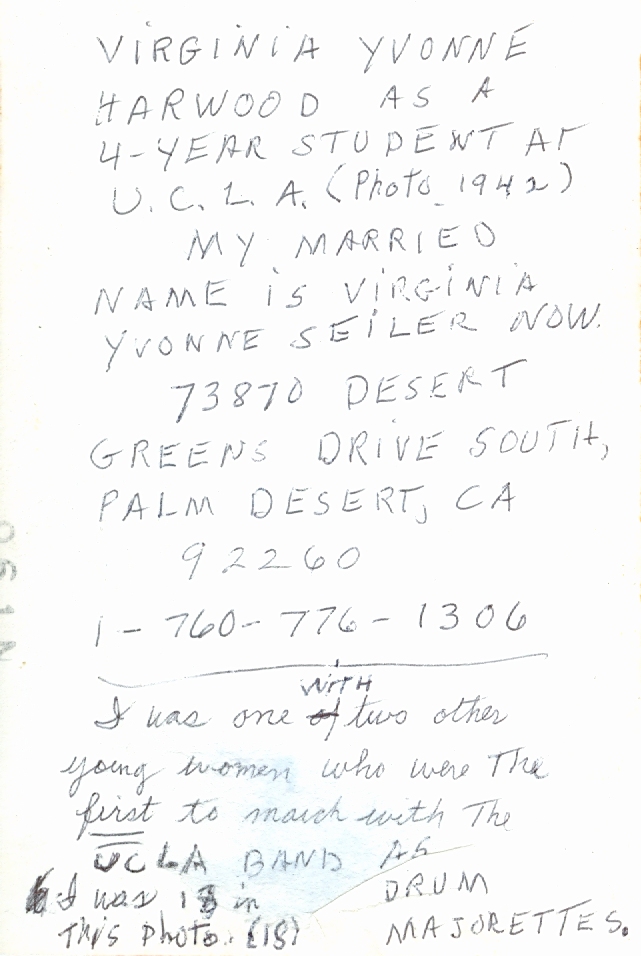 VIRGINIA YVONNE
HARWOOD AS A
4-YEAR STUDENT AT
U.C.L.A. (Photo 1942)
MY MARRIED
NAME IS VIRGINIA
YVONNE SEILER NOW.
73870 DESERT
GREENS DRIVE SOUTH,
PALM DESERT, CA
92260
1-760-776-1306
WITH
I was one of two other
young women who were The
first to march with The
UCLA BAND AS
DRUM
MAJORETTES.
I was 18 in
This photo. (18)